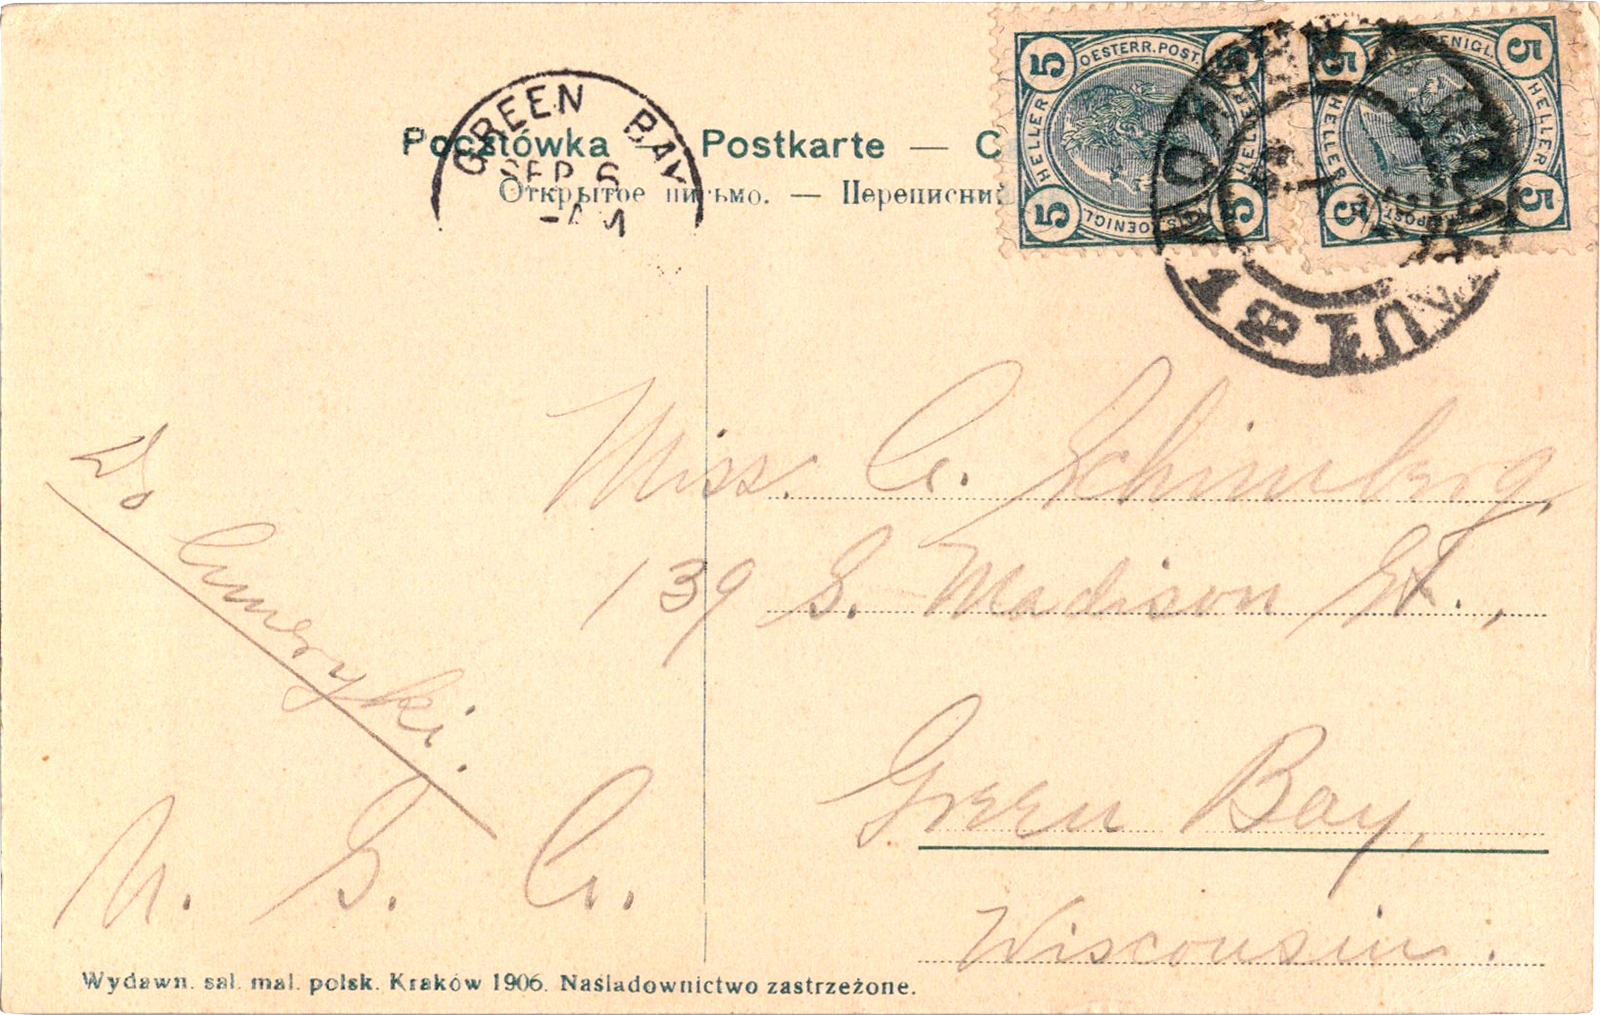 GREEN BAY
SEP 6
-AM
Pocztówka — Postkarte — C
Открытое письмо. — Переписний
5 OESTERR.POST. 5
HELLER HELLER
5 KOENIGL. 5
5 KOENIGL. 5
HELLER HELLER
5 POST 5
Miss. C. Schimberg,
139 S. Madison St.,
Green Bay,
Wisconsin.
Do Ameryki.
U. S. A.
Wydawn. sal. mal. polsk. Kraków 1906. Naśladownictwo zastrzeżone.